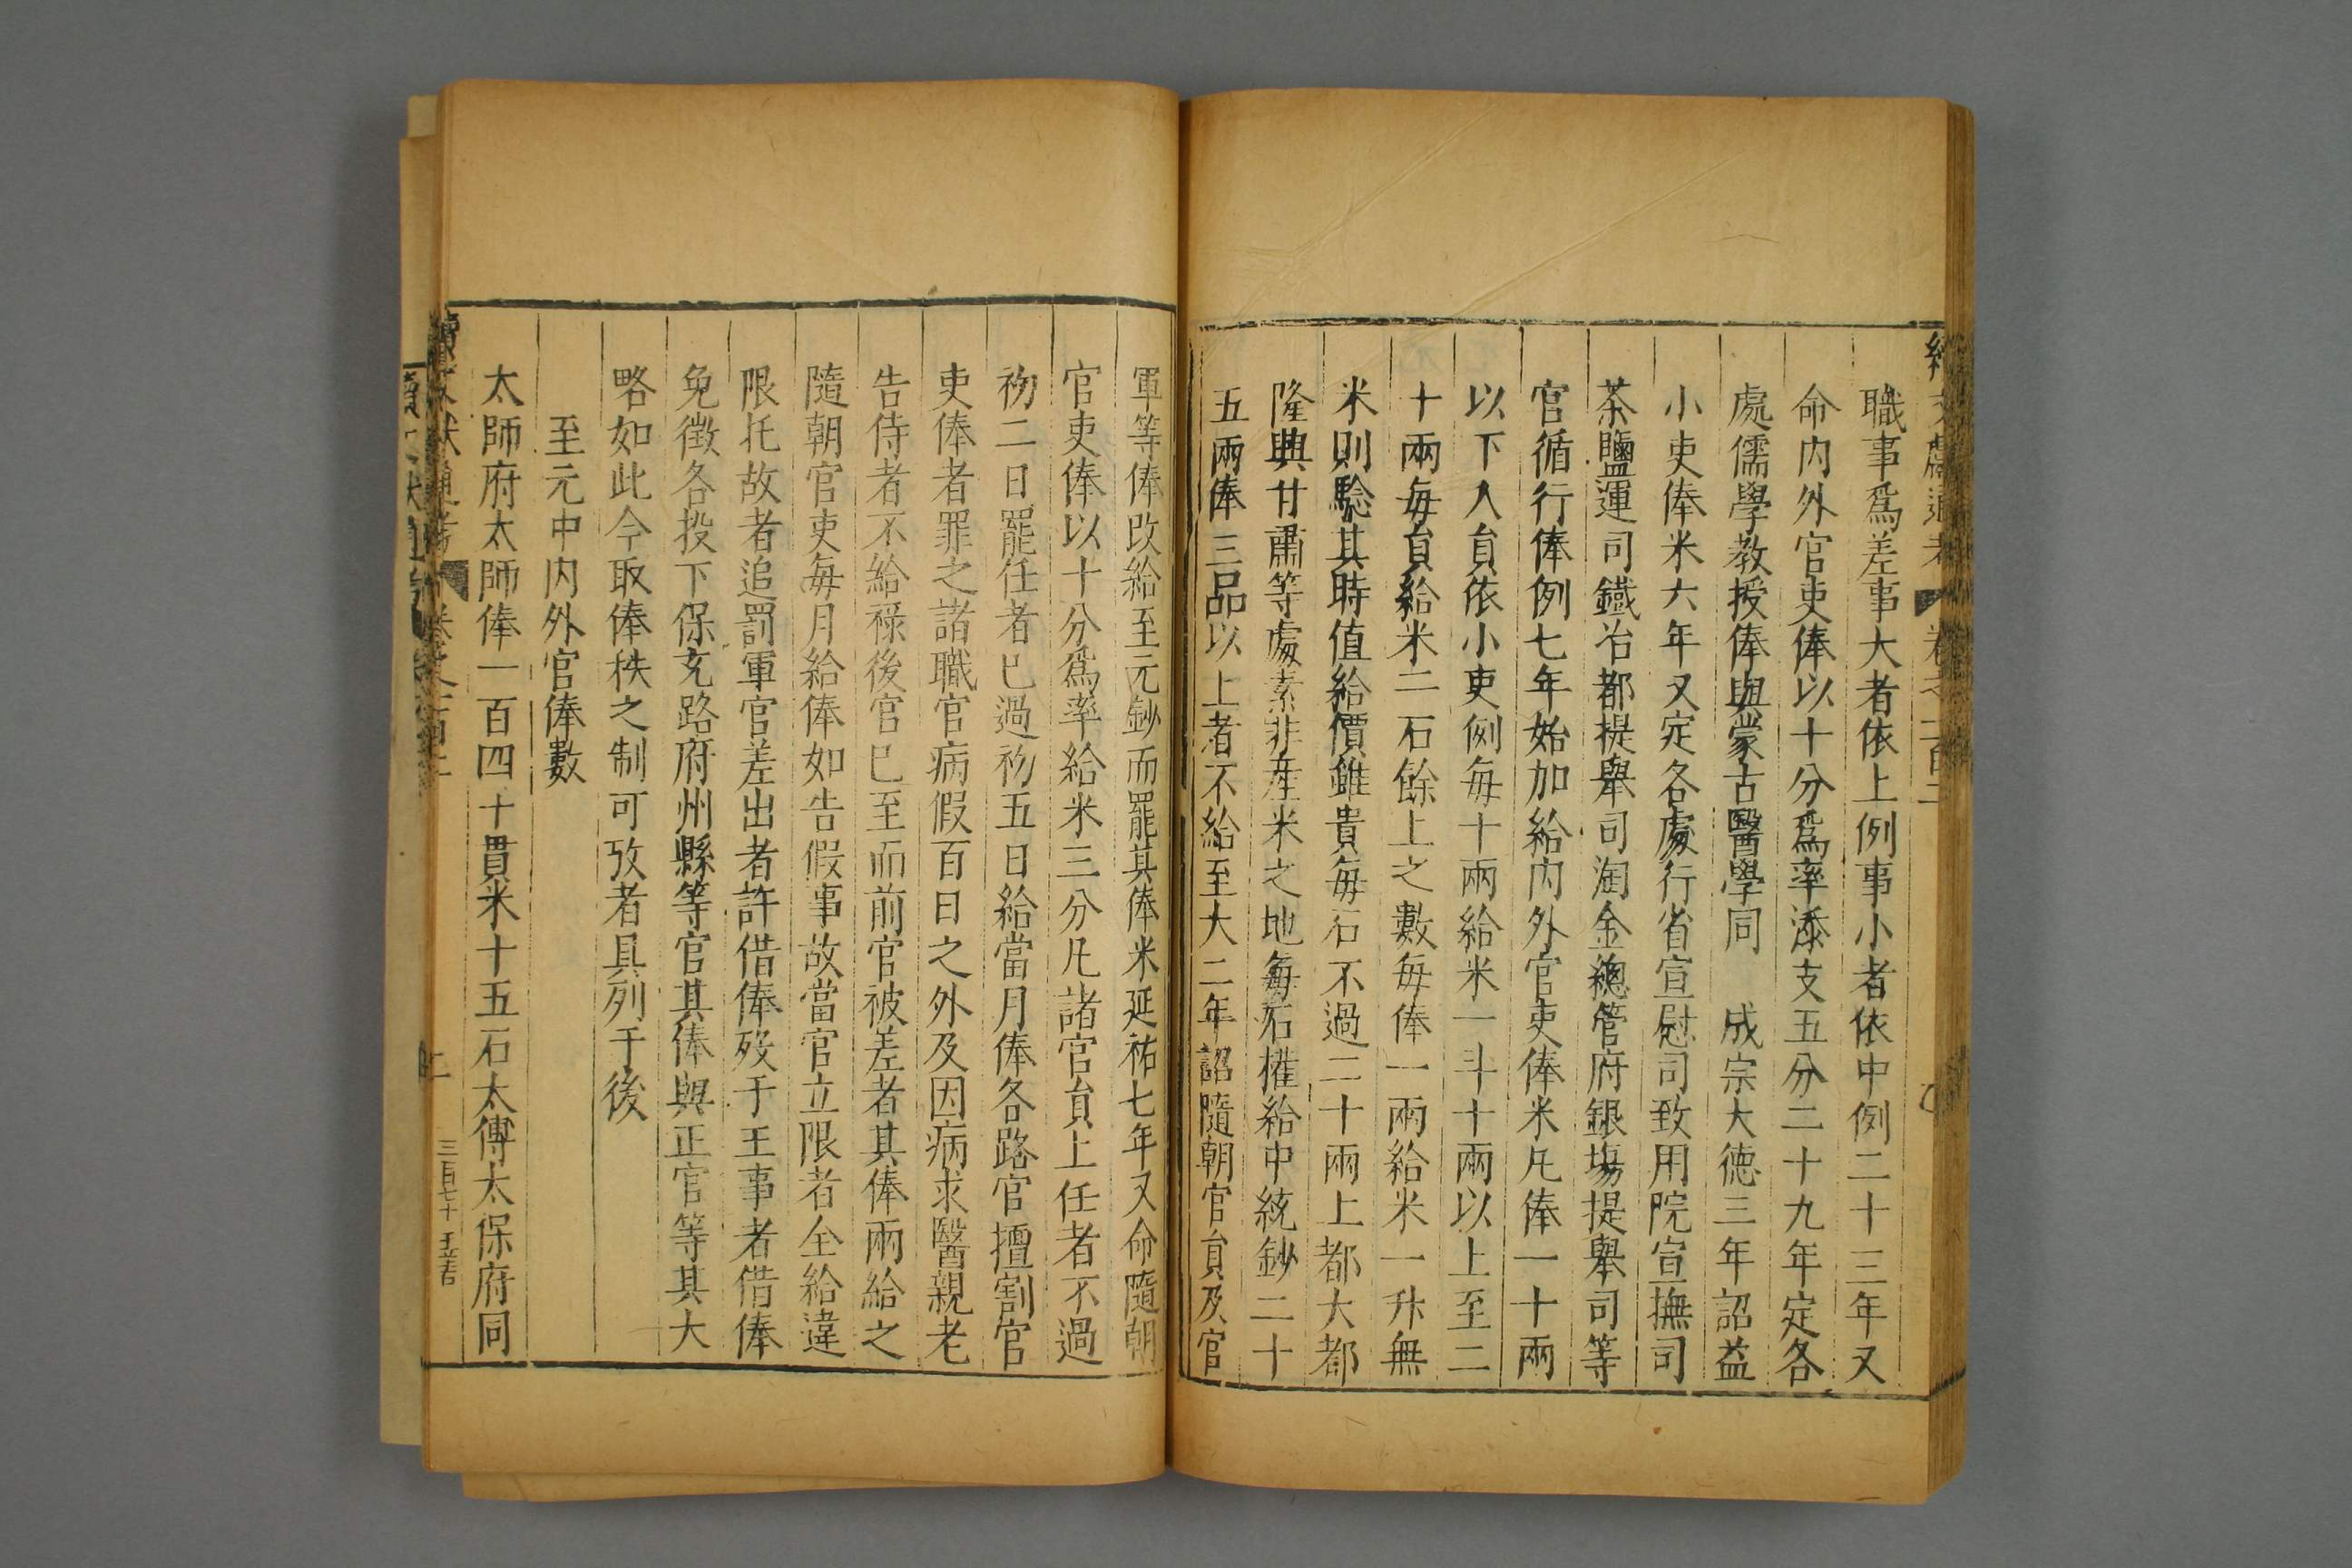 職事爲差事大者依上例事小者依中例二十三年又
命內外官吏俸以十分爲率添支五分二十九年定各
處儒學教授俸與蒙古醫學同　成宗大德三年詔益
小吏俸米六年又定各處行省宣慰司致用院宣撫司
茶鹽運司鐵冶都提舉司淘金總管府銀塲提舉司等
官循行俸例七年始加給內外官吏俸米凡俸一十兩
以下人貟依小吏例每十兩給米一斗十兩以上至二
十兩每貟給米二石餘上之數每俸一兩給米一升無
米則驗其時值給價雖貴每石不過二十兩上都大都
隆興甘肅等處素非産米之地每石權給中統鈔二十
五兩俸三品以上者不給至大二年詔隨朝官貟及官
軍等俸改給至元鈔而罷其俸米延祐七年又命隨朝
官吏俸以十分爲率給米三分凡諸官貟上任者不過
初二日罷任者已過初五日給當月俸各路官擅割官
吏俸者罪之諸職官病假百日之外及因病求醫親老
告侍者不給祿後官已至而前官被差者其俸兩給之
隨朝官吏每月給俸如告假事故當官立限者全給違
限托故者追罰軍官差出者許借俸歿于王事者借俸
免徵各投下保充路府州縣等官其俸與正官等其大
略如此今取俸秩之制可攷者具列于後
至元中內外官俸數
太師府太師俸一百四十貫米十五石太傅太保府同
三百七十